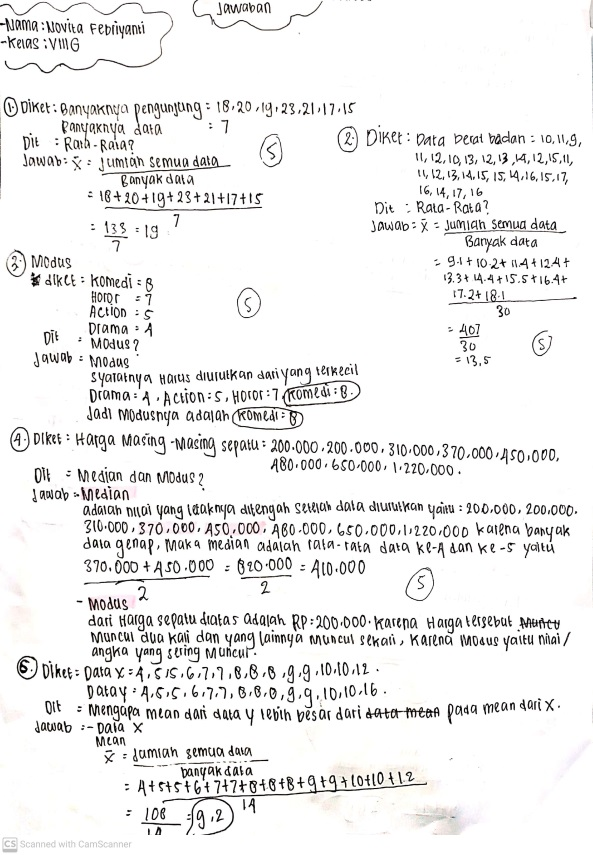 Jawaban
-Nama : Novita Febriyanti
-Kelas : VIII G
1. Diket : Banyaknya pengunjung = 18, 20, 19, 23, 21, 17, 15
Banyaknya data : 7
Dit : Rata-Rata?
Jawab : x̄ = Jumlah semua data
Banyak data
= 18+20+19+23+21+17+15
7
= 133 = 19
7
5
2. Diket : Data berat badan = 10, 11, 9,
11, 12, 10, 13, 12, 13, 14, 12, 15, 11,
11, 12, 13, 14, 15, 15, 14, 16, 15, 17,
16, 14, 17, 16
Dit : Rata-Rata?
Jawab : x̄ = Jumlah semua data
Banyak data
= 9.1 + 10.2 + 11.4 + 12.4 +
13.3 + 14.4 + 15.5 + 16.4 +
17.2 + 18.1
30
= 407
30
= 13,5
5
3. Modus
diket = Komedi = 8
Horor = 7
Action = 5
Drama = 4
Dit = Modus?
Jawab = Modus
syaratnya Harus diurutkan dari yang terkecil
Drama = 4, Action = 5, Horor : 7, Komedi : 8.
Jadi Modusnya adalah Komedi = 8
5
4. Diket : Harga Masing-Masing sepatu = 200.000, 200.000, 310.000, 370.000, 450,000,
480.000, 650.000, 1.220.000.
Dit = Median dan Modus?
Jawab = -Median
adalah nilai yang letaknya ditengah setelah data diurutkan yaitu = 200.000, 200.000.
310.000, 370.000, 450.000, 480.000, 650.000, 1.220.000 karena banyak
data genap, Maka median adalah rata-rata data ke-4 dan ke-5 yaitu
370.000 + 450.000 = 820.000 = 410.000
2 2
5
- Modus
dari Harga sepatu diatas adalah RP : 200.000. Karena Harga tersebut Muncu
Muncul dua kali dan yang lainnya Muncul sekali, Karena Modus yaitu nilai/
angka yang sering Muncul.
5. Diket = Data X = 4, 5, 5, 6, 7, 7, 8, 8, 8, 9, 9, 10, 10, 12.
Data Y = 4, 5, 5, 6, 7, 7, 8, 8, 8, 9, 9, 10, 10, 16.
Dit = Mengapa mean dari data y lebih besar dari data mean pada mean dari X.
Jawab = - Data X
Mean
x̄ = Jumlah semua data
banyak data
= 4+5+5+6+7+7+8+8+8+9+9+10+10+12
14
= 108 = 9,2
14
CS Scanned with CamScanner